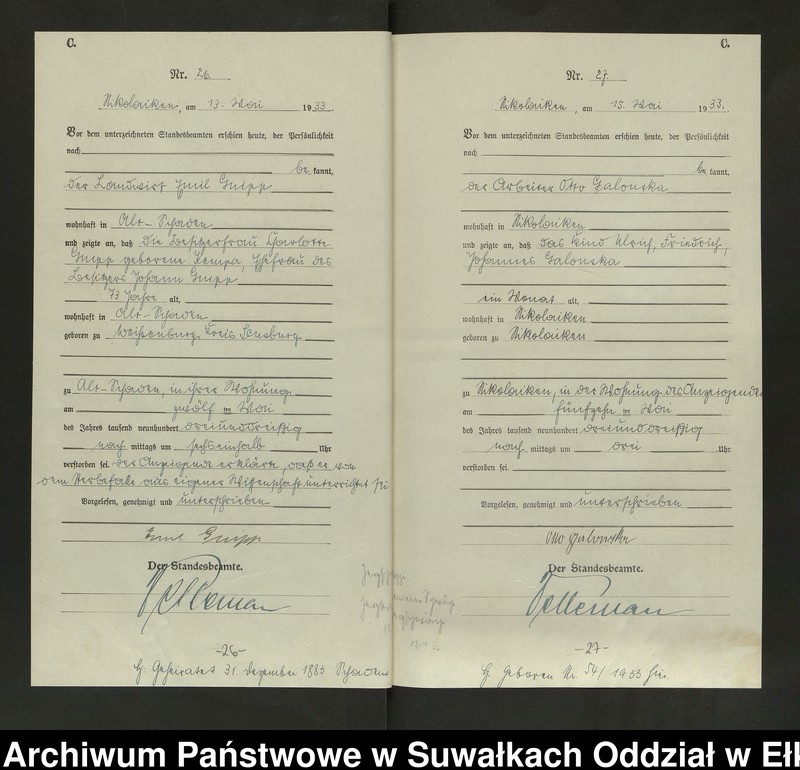 C.
Nr. 26
Nikolaiken, am 13. Mai 1933.
Vor dem unterzeichneten Standesbeamten erschien heute, der Persönlichkeit
nach
be kannt,
der Landwirt Emil Gnipp
wohnhaft in Alt-Schaden
und zeigte an, daß die Besitzerfrau Charlotte
Gnipp geborene Kempa, Ehefrau des
Besitzers Johann Gnipp
73 Jahre alt,
wohnhaft in Alt-Schaden
geboren zu Weißenburg, Kreis Sensburg
zu Alt-Schaden, in ihrer Wohnung
am zwölf ten Mai
des Jahres tausend neunhundert dreiunddreißig
nach mittags um sechseinhalb Uhr
verstorben sei. Der Anzeigende erklärte, daß er von
dem Sterbefalle aus eigener Wissenschaft unterrichtet sei
Vorgelesen, genehmigt und unterschrieben
Emil Gnipp
Der Standesbeamte.
-26-
Geheiratet 31. Dezember 1883 Schaden
C.
Nr. 27.
Nikolaiken, am 15. Mai 1933.
Vor dem unterzeichneten Standesbeamten erschien heute, der Persönlichkeit
nach
be kannt,
der Arbeiter Otto Galonska
wohnhaft in Nikolaiken
und zeigte an, daß das Kind Ulrich, Friedrich,
Johannes Galonska
ein Monat alt,
wohnhaft in Nikolaiken
geboren zu Nikolaiken
zu Nikolaiken, in der Wohnung des Anzeigenden
am fünfzehn ten Mai
des Jahres tausend neunhundert dreiunddreißig
nach mittags um drei Uhr
verstorben sei.
Vorgelesen, genehmigt und unterschrieben
Otto Galonska
Der Standesbeamte.
-27-
Geboren Nr. 54/1933 hier.
Archiwum Państwowe w Suwałkach Oddział w Ełk